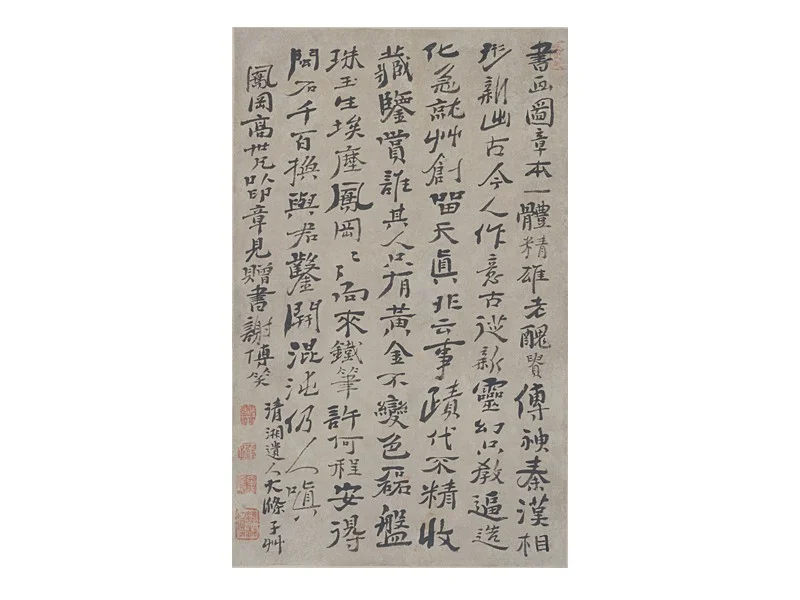 書画圖章本一體精雄老醜貴傳神秦漢相
形新出古今人作意古從新靈幻只教逼造
化急就艸創留天真非云事蹟代不精收
藏鑒賞誰其人只有黃金不變色磊盤
珠玉生埃塵鳳岡鳳岡向來鐵筆許何程安得
閑石千百換與君鑿開混沌仍人嗔
鳳岡高世兄以印章見贈書謝傅笑
清湘遺人大滌子艸